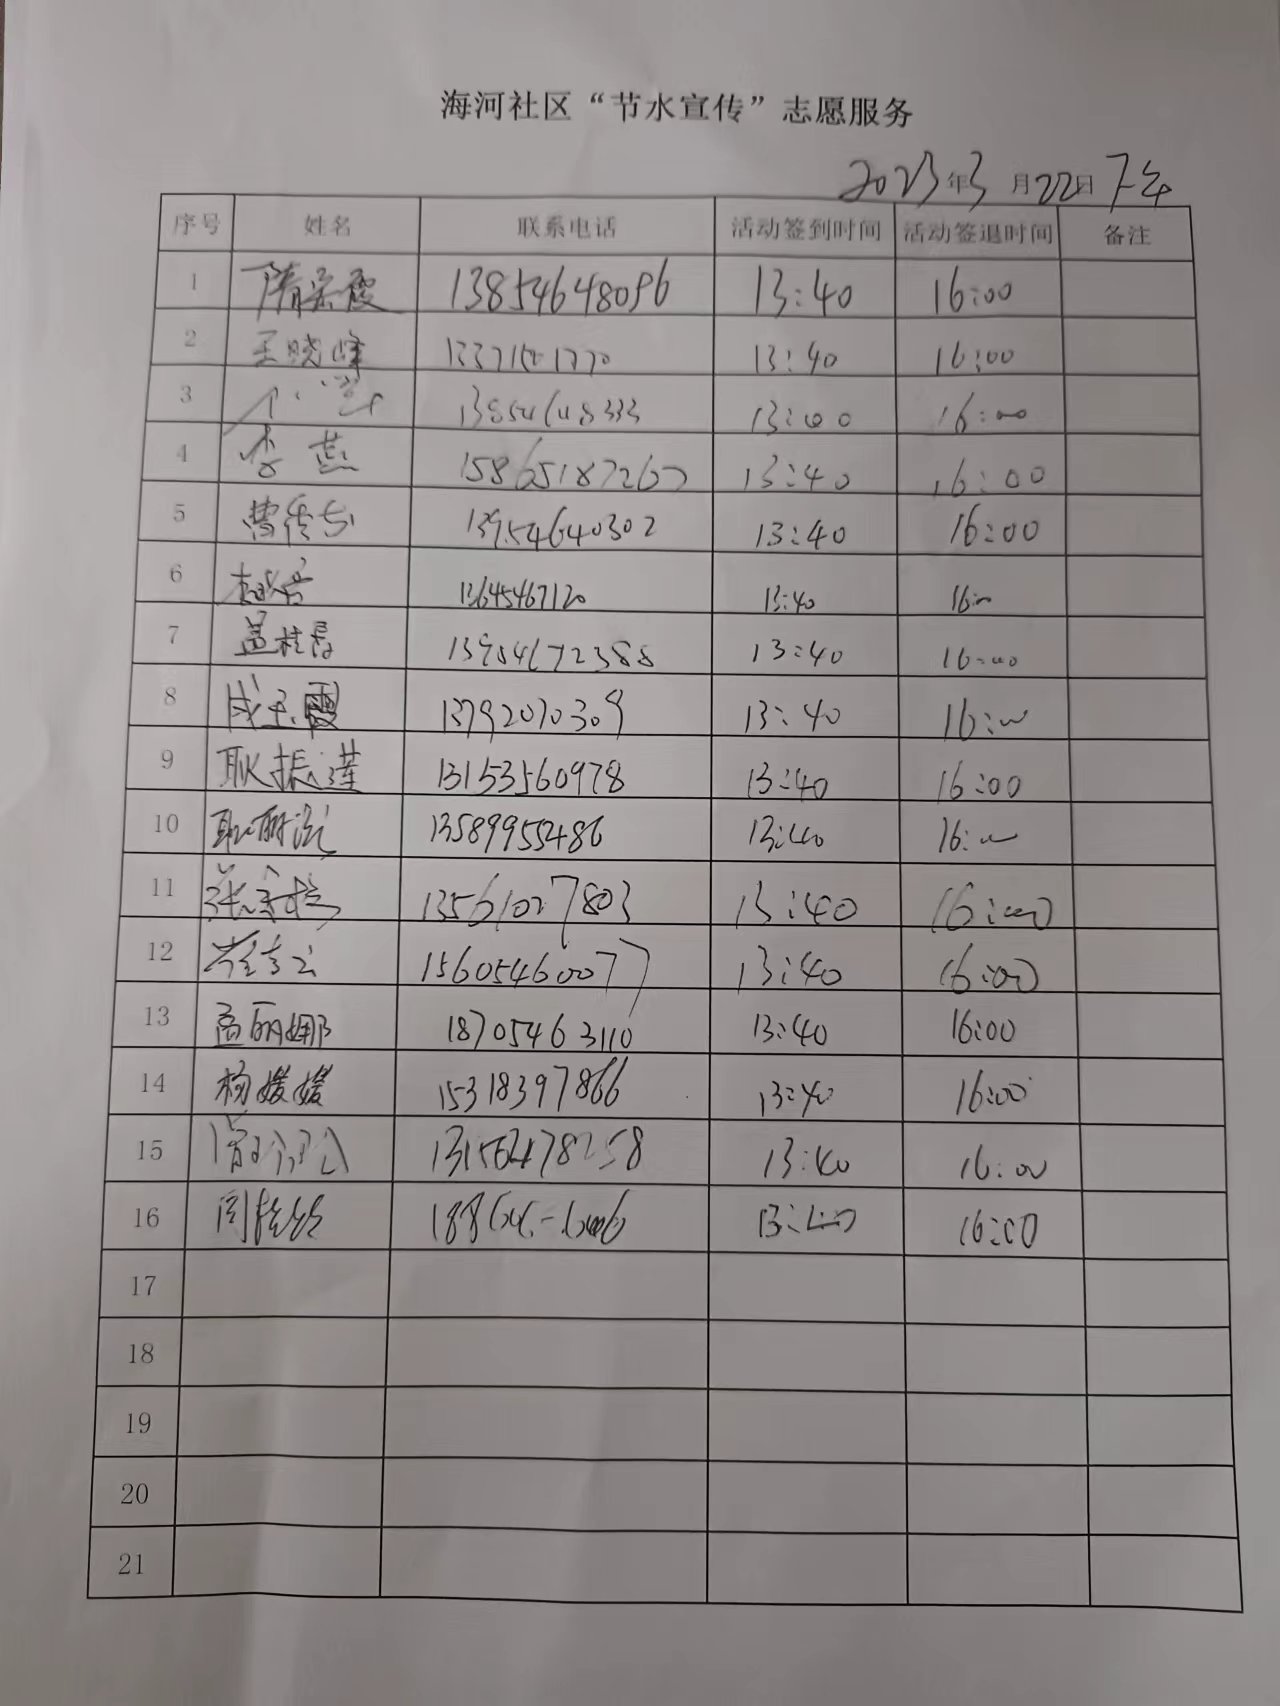 海河社区“节水宣传”志愿服务
2023年3月22日下午
序号 姓名 联系电话 活动签到时间 活动签退时间 备注
1 13854648096 13:40 16:00
2 王晓峰 13:40 16:00
3 16:00
4 李燕 13:40 16:00
5 曹传方 13954640302 13:40 16:00
6 13645467120 13:40 16:00
7 盖桂香 13954672388 13:40 16:00
8 成玉霞 13792070309 13:40 16:00
9 耿振莲 13153560978 13:40 16:00
10 13589955486 13:40 16:00
11 13561027803 13:40 16:00
12 15605460077 13:40 16:00
13 孟丽娜 18705463110 13:40 16:00
14 杨媛媛 15318397866 13:40 16:00
15 13:40 16:00
16 13:40 16:00
17
18
19
20
21